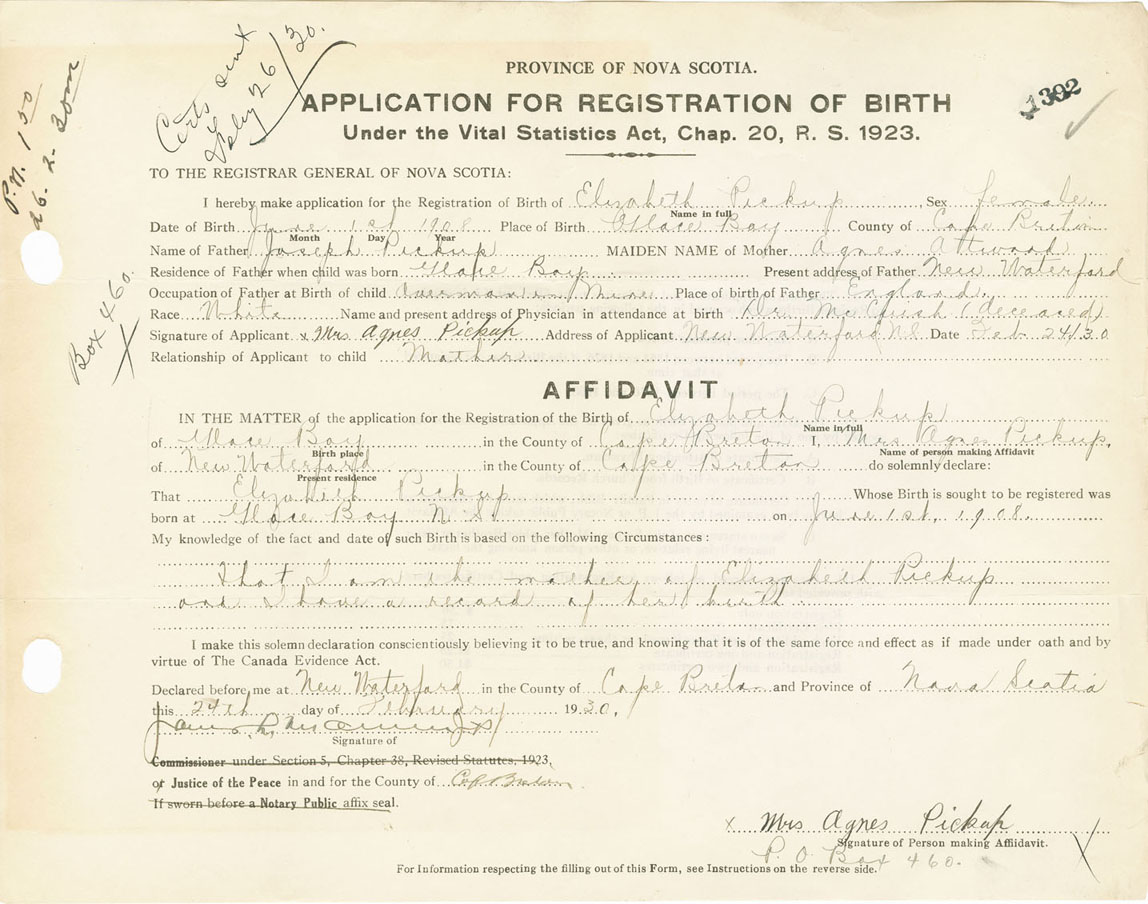 Certs sent
Feby 26/30.
P.N. 1 50
26. 2. 30 m
Box 460.
1302
PROVINCE OF NOVA SCOTIA.
APPLICATION FOR REGISTRATION OF BIRTH
Under the Vital Statistics Act, Chap. 20, R. S. 1923.
TO THE REGISTRAR GENERAL OF NOVA SCOTIA:
I hereby make application for the Registration of Birth of Elizabeth Pickup Sex female
Name in full
Date of Birth June 1st 1908 Place of Birth Glace Bay County of Cape Breton
Month Day Year
Name of Father Joseph Pickup MAIDEN NAME of Mother Agnes Attwood
Residence of Father when child was born Glace Bay Present address of Father New Waterford
Occupation of Father at Birth of child Overman in Mine Place of birth of Father England.
Race White Name and present address of Physician in attendance at birth Dr. (deceased)
Signature of Applicant x Mrs Agnes Pickup Address of Applicant New Waterford N.S. Date Feb 24/30
Relationship of Applicant to child Mother
AFFIDAVIT
IN THE MATTER of the application for the Registration of the Birth of Elizabeth Pickup
Name in full
of Glace Bay in the County of Cape Breton I, Mrs Agnes Pickup,
Birth place Name of person making Affidavit
of New Waterford in the County of Cape Breton do solemnly declare:
Present residence
That Elizabeth Pickup Whose Birth is sought to be registered was
born at Glace Bay N. S. on June 1st, 1908.
My knowledge of the fact and date of such Birth is based on the following Circumstances:
that I am the mother of Elizabeth Pickup
and I have a record of her birth.
I make this solemn declaration conscientiously believing it to be true, and knowing that it is of the same force and effect as if made under oath and by
virtue of The Canada Evidence Act.
Declared before me at New Waterford in the County of Cape Breton and Province of Nova Scotia
this 24th day of February 1930.
Signature of
Commissioner under Section 5, Chapter 38, Revised Statutes, 1923,
or Justice of the Peace in and for the County of Cape Breton
If sworn before a Notary Public affix seal.
x Mrs Agnes Pickup
Signature of Person making Affidavit.
P. O. Box 460.
For Information respecting the filling out of this Form, see Instructions on the reverse side.